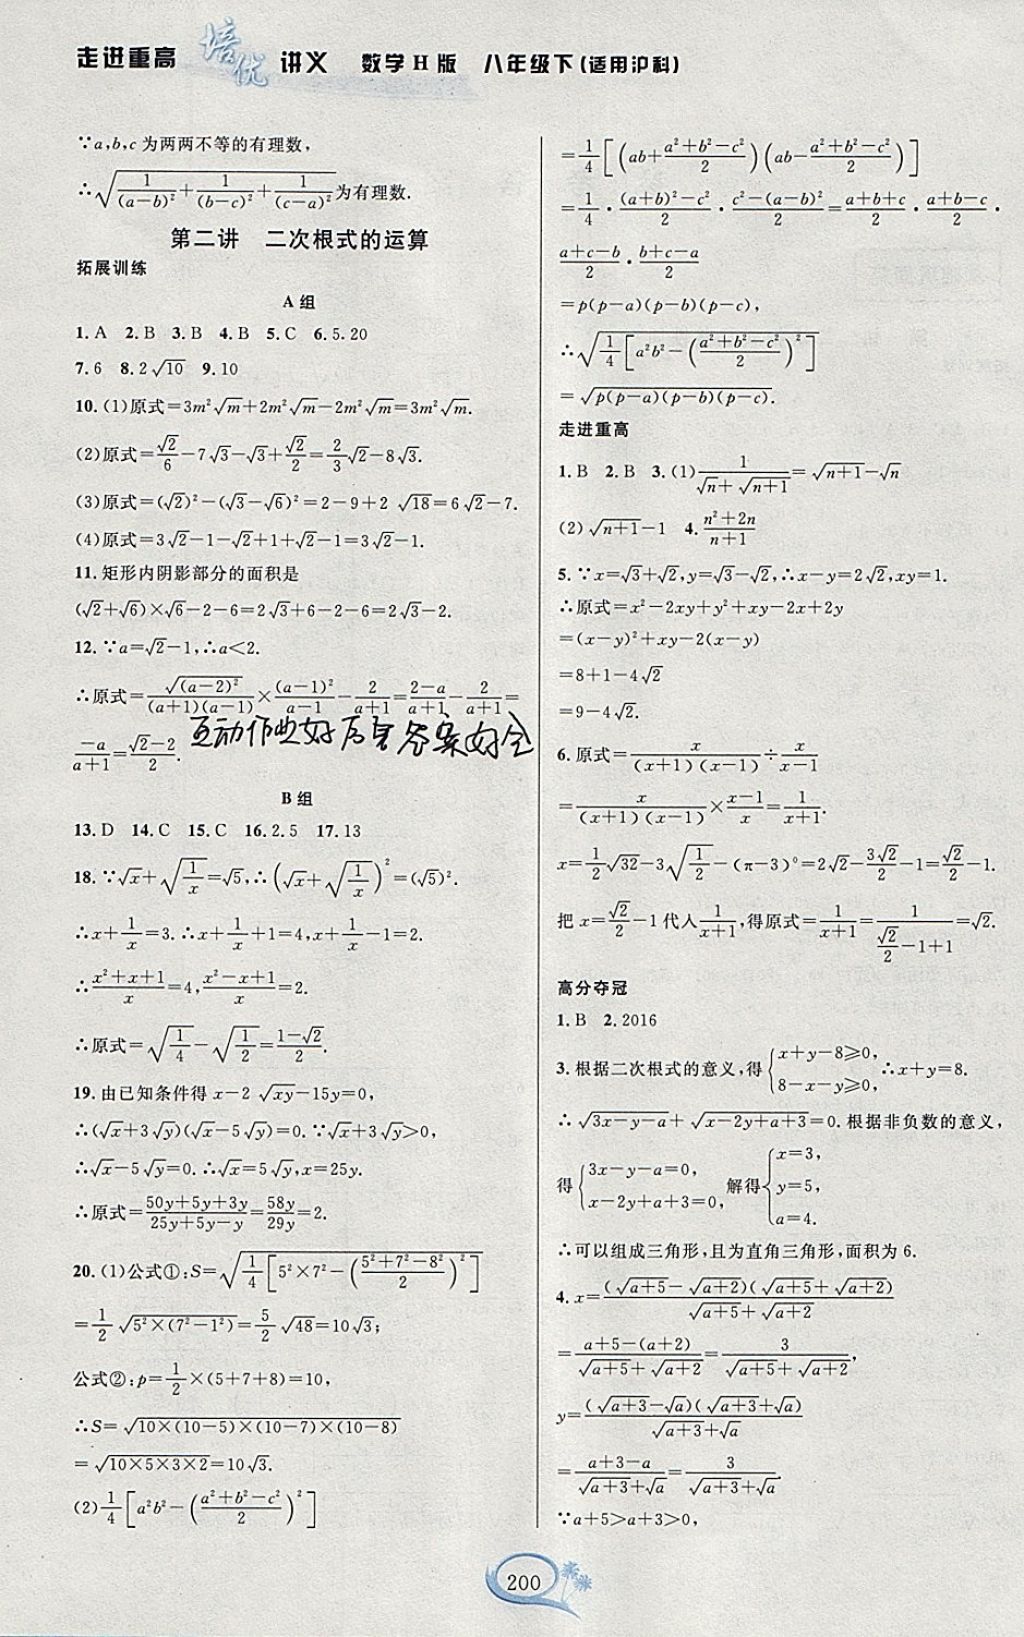 走进重高 培优 讲义 数学H版 八年级下(适用沪科)
∵a,b,c为两两不等的有理数,
∴√(1/(a−b)²+1/(b−c)²+1/(c−a)²)为有理数.
第二讲 二次根式的运算
拓展训练
A组
1.A 2.B 3.B 4.B 5.C 6.5.20
7.6 8.2√10 9.10
10.(1)原式=3m²√m+2m²√m−2m²√m=3m²√m.
(2)原式=√2/6−7√3−√3+√2/2=2/3√2−8√3.
(3)原式=(√2)²−(√3−√6)²=2−9+2√18=6√2−7.
(4)原式=3√2−1−√2+1+√2−1=3√2−1.
11.矩形内阴影部分的面积是
(√2+√6)×√6−2−6=2√3+6−2−6=2√3−2.
12.∵a=√2−1,∴a<2.
∴原式=√((a−2)²)/((a+1)(a−1))×(a−1)²/(a−1)−2/(a+1)=(2−a)/(a+1)−2/(a+1)=
−a/(a+1)=(√2−2)/2.
互动作业好后害答案好全
B组
13.D 14.C 15.C 16.2.5 17.13
18.∵√x+√(1/x)=√5,∴(√x+√(1/x))²=(√5)².
∴x+1/x=3.∴x+1/x+1=4,x+1/x−1=2.
∴(x²+x+1)/x=4,(x²−x+1)/x=2.
∴原式=√(1/4)−√(1/2)=(1−√2)/2.
19.由已知条件得x−2√(xy)−15y=0,
∴(√x+3√y)(√x−5√y)=0.∵√x+3√y>0,
∴√x−5√y=0.∴√x=5√y,x=25y.
∴原式=(50y+5y+3y)/(25y+5y−y)=58y/29y=2.
20.(1)公式①:S=√(1/4[5²×7²−((5²+7²−8²)/2)²])
=1/2√(5²×(7²−1²))=5/2√48=10√3;
公式②:p=1/2×(5+7+8)=10,
∴S=√(10×(10−5)×(10−7)×(10−8))
=√(10×5×3×2)=10√3.
(2)1/4[a²b²−((a²+b²−c²)/2)²]
=1/4[(ab+(a²+b²−c²)/2)(ab−(a²+b²−c²)/2)]
=1/4·((a+b)²−c²)/2·(c²−(a−b)²)/2=(a+b+c)/2·(a+b−c)/2·
(a+c−b)/2·(b+c−a)/2
=p(p−a)(p−b)(p−c),
∴√(1/4[a²b²−((a²+b²−c²)/2)²])
=√(p(p−a)(p−b)(p−c)).
走进重高
1.B 2.B 3.(1)1/(√n+√(n+1))=√(n+1)−√n
(2)√(n+1)−1 4.(n²+2n)/(n+1)
5.∵x=√3+√2,y=√3−√2,∴x−y=2√2,xy=1.
∴原式=x²−2xy+y²+xy−2x+2y
=(x−y)²+xy−2(x−y)
=8+1−4√2
=9−4√2.
6.原式=x/((x+1)(x−1))÷x/(x−1)
=x/((x+1)(x−1))×(x−1)/x=1/(x+1).
x=1/2√32−3√(1/2)−(π−3)⁰=2√2−3√2/2−1=√2/2−1.
把x=√2/2−1代入1/(x+1),得原式=1/(x+1)=1/(√2/2−1+1)=√2.
高分夺冠
1.B 2.2016
3.根据二次根式的意义,得{x+y−8⩾0, 8−x−y⩾0, ∴x+y=8.
∴√(3x−y−a)+√(x−2y+a+3)=0.根据非负数的意义,
得{3x−y−a=0, x−2y+a+3=0, 解得{x=3, y=5, a=4.
∴可以组成三角形,且为直角三角形,面积为6.
4.x=(√(a+5)−√(a+2))(√(a+5)+√(a+2))/(√(a+5)+√(a+2))
=(a+5−(a+2))/(√(a+5)+√(a+2))=3/(√(a+5)+√(a+2)),
y=(√(a+3)−√a)(√(a+3)+√a)/(√(a+3)+√a)
=(a+3−a)/(√(a+3)+√a)=3/(√(a+3)+√a).
∵a+5>a+3>0,
200